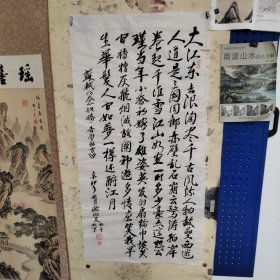 南派山水
大江东去浪淘尽千古风流人物故垒西边
人道是三国周郎赤壁乱石崩云惊涛拍岸
卷起千堆雪江山如画一时多少豪杰遥想公
瑾当年小乔初嫁了雄姿英发羽扇纶巾谈笑
间樯橹灰飞烟灭故国神游多情应笑我早
生华发人生如梦一樽还酹江月
苏轼词念奴娇赤壁怀古